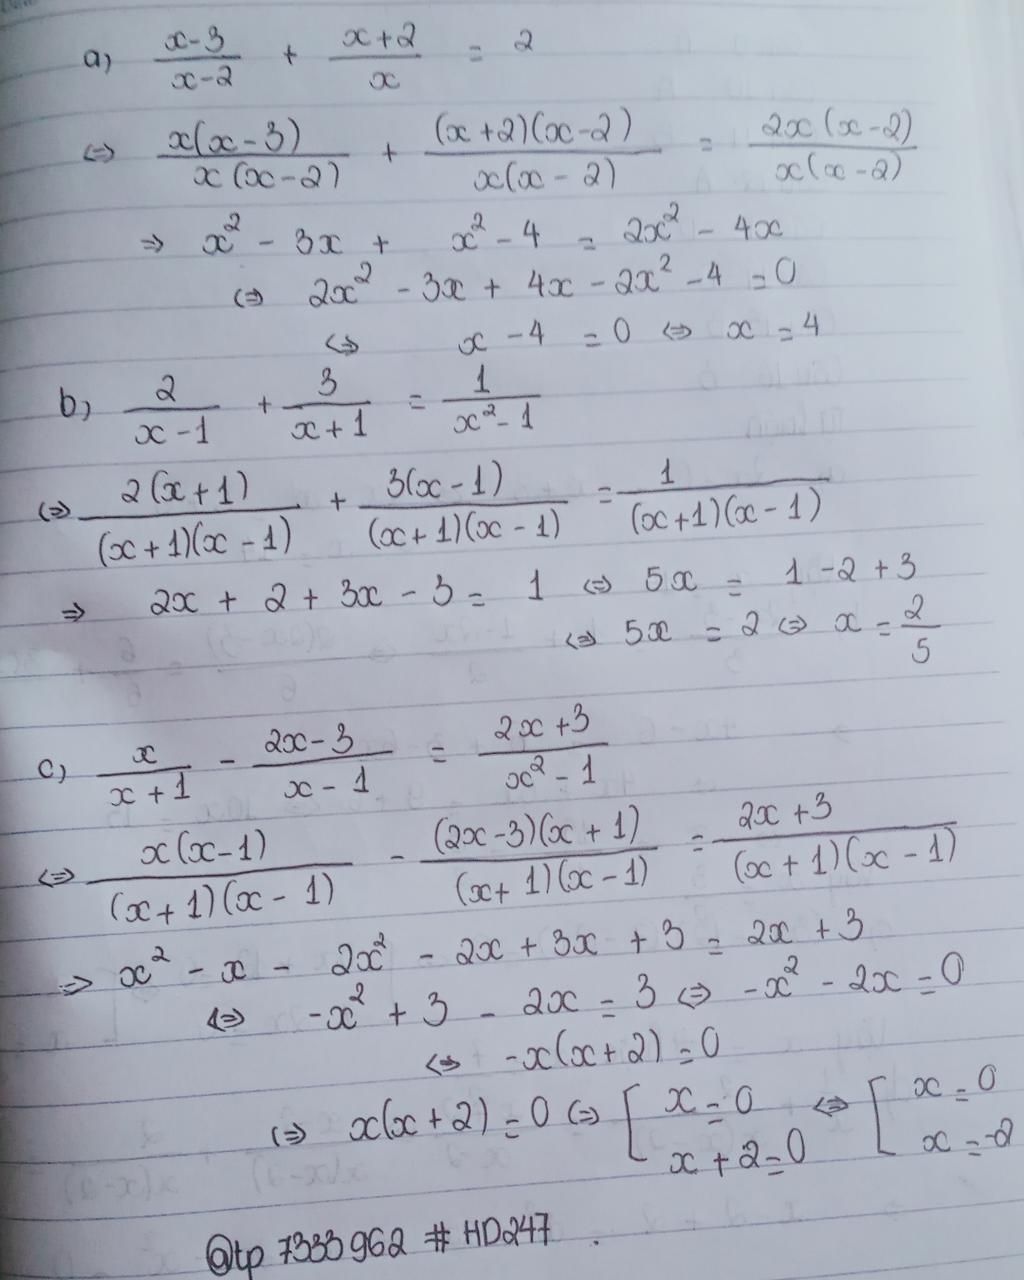 a) (x-3)/(x-2) + (x+2)/x = 2
⇔ x(x-3)/x(x-2) + (x+2)(x-2)/x(x-2) = 2x(x-2)/x(x-2)
⇒ x² - 3x + x² - 4 = 2x² - 4x
⇔ 2x² - 3x + 4x - 2x² - 4 = 0
⇔ x - 4 = 0 ⇔ x = 4
b) 2/(x-1) + 3/(x+1) = 1/(x²-1)
⇔ 2(x+1)/(x+1)(x-1) + 3(x-1)/(x+1)(x-1) = 1/(x+1)(x-1)
⇒ 2x + 2 + 3x - 3 = 1 ⇔ 5x = 1 - 2 + 3
⇔ 5x = 2 ⇔ x = 2/5
c) x/(x+1) - (2x-3)/(x-1) = (2x+3)/(x²-1)
⇔ x(x-1)/(x+1)(x-1) - (2x-3)(x+1)/(x+1)(x-1) = (2x+3)/(x+1)(x-1)
⇒ x² - x - 2x² - 2x + 3x + 3 = 2x + 3
⇔ -x² + 3 - 2x = 3 ⇔ -x² - 2x = 0
⇔ -x(x+2) = 0
⇔ x(x+2) = 0 ⇔ [ x = 0 ⇔ [ x = 0
x + 2 = 0 x = -2
@tp 7333962 # HD247 .